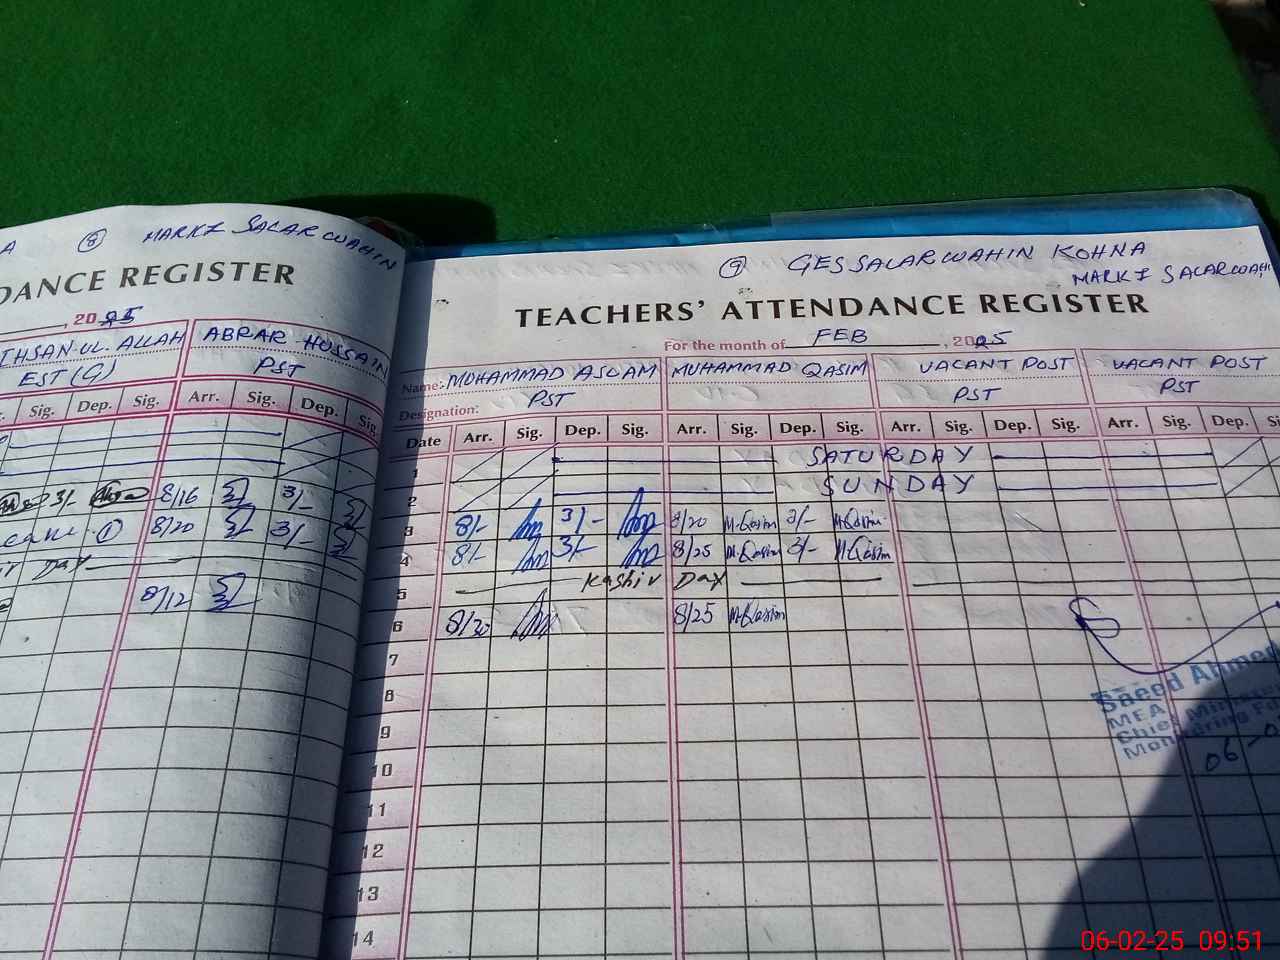 A ⑧ MARKZ SALARWAHIN
DANCE REGISTER
, 2025
IHSAN-UL-ALLAH ABRAR HUSSAIN
EST (G) PST
Sig. Dep. Sig. Arr. Sig. Dep. Sig.
3/- 8/16 3/-
① 8/20 3/-
Day
8/12
⑨ GES SALARWAHIN KOHNA
MARKZ SALARWAHI
TEACHERS' ATTENDANCE REGISTER
For the month of FEB , 2025
Name:- MUHAMMAD ASLAM MUHAMMAD QASIM VACANT POST VACANT POST
Designation: PST PST PST
Date Arr. Sig. Dep. Sig. Arr. Sig. Dep. Sig. Arr. Sig. Dep. Sig. Arr. Sig. Dep. Si
1 SATURDAY
2 SUNDAY
3 8/- 3/- 8/20 M.Qasim 3/- M.Qasim
4 8/- 3/- 8/25 M.Qasim 3/- M.Qasim
5 Kashir Day
6 8/30 8/25 M.Qasim
7
8
9
10
11
12
13
14
Saeed Ahmed
MEA
Chief Minister
Monitoring F
06-0
06-02-25 09:51